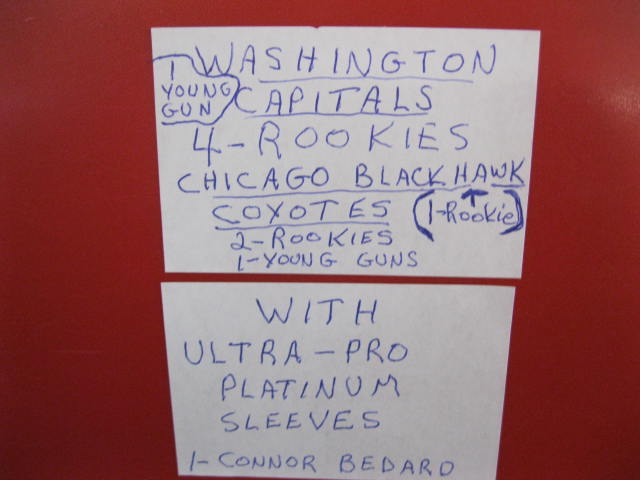 WASHINGTON
1 YOUNG GUN
CAPITALS
4-ROOKIES
CHICAGO BLACKHAWK
COYOTES (1-Rookie)
2-ROOKIES
1-YOUNG GUNS
WITH
ULTRA-PRO
PLATINUM
SLEEVES
1-CONNOR BEDARD